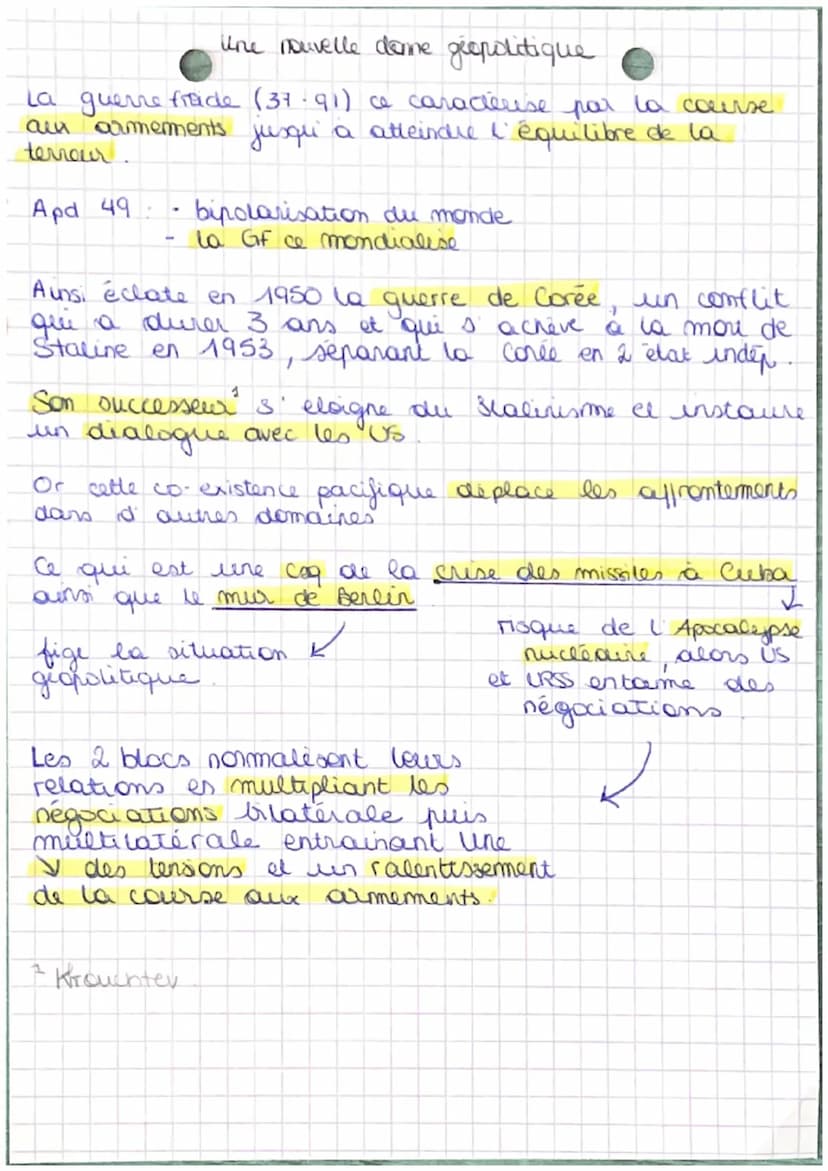 Une nouvelle donne géopolitique
La guerre froide (37-91) ce caractérise par la course
aux armements jusqu'à atteindre l'équilibre de la
terreur.
Apd 49 : - bipolarisation du monde
- la GF ce mondialise
Ainsi éclate en 1950 la guerre de Corée, un conflit
qui a durer 3 ans et qui s'achève à la mort de
Staline en 1953, séparant la Corée en 2 état indép.
Son successeur¹ s'eloigne du Stalinisme et instaure
un dialogue avec les US.
Or cette co-existence pacifique déplace les affrontements
dans d'autres domaines
Ce qui est une csq de la crise des missiles à Cuba
ainsi que le mur de Berlin
risque de l'Apocalypse
fige la situation
nucléaire, alors US
géopolitique.
et URSS entame des
négociations.
Les 2 blocs normalisent leurs
relations en multipliant les
négociations bilatérale puis
multilatérale entrainant une
↘ des tensions et un ralentissement
de la course aux armements.
¹ Krouchtev